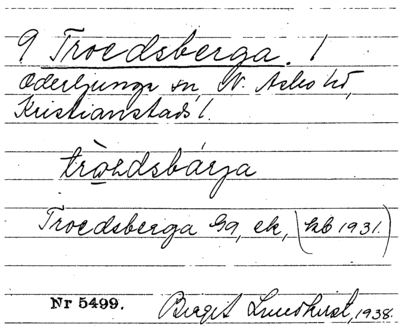 9 Troedsberga. 1
Oderljunga sn, N. Åsbo hd,
Kristianstads l.
tròedsbárja
Troedsberga ga, ek, (kb 1931.)
Nr 5499. Birgit Lundkvist, 1938.